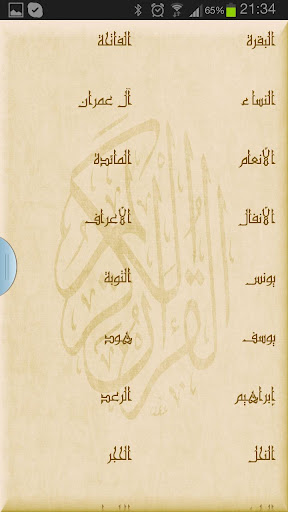 65% 21:34
البقرة الفاتحة
النساء آل عمران
الأنعام المائدة
الأنفال الأعراف
يونس التوبة
يوسف هود
إبراهيم الرعد
النحل الحجر
القرآن الكريم